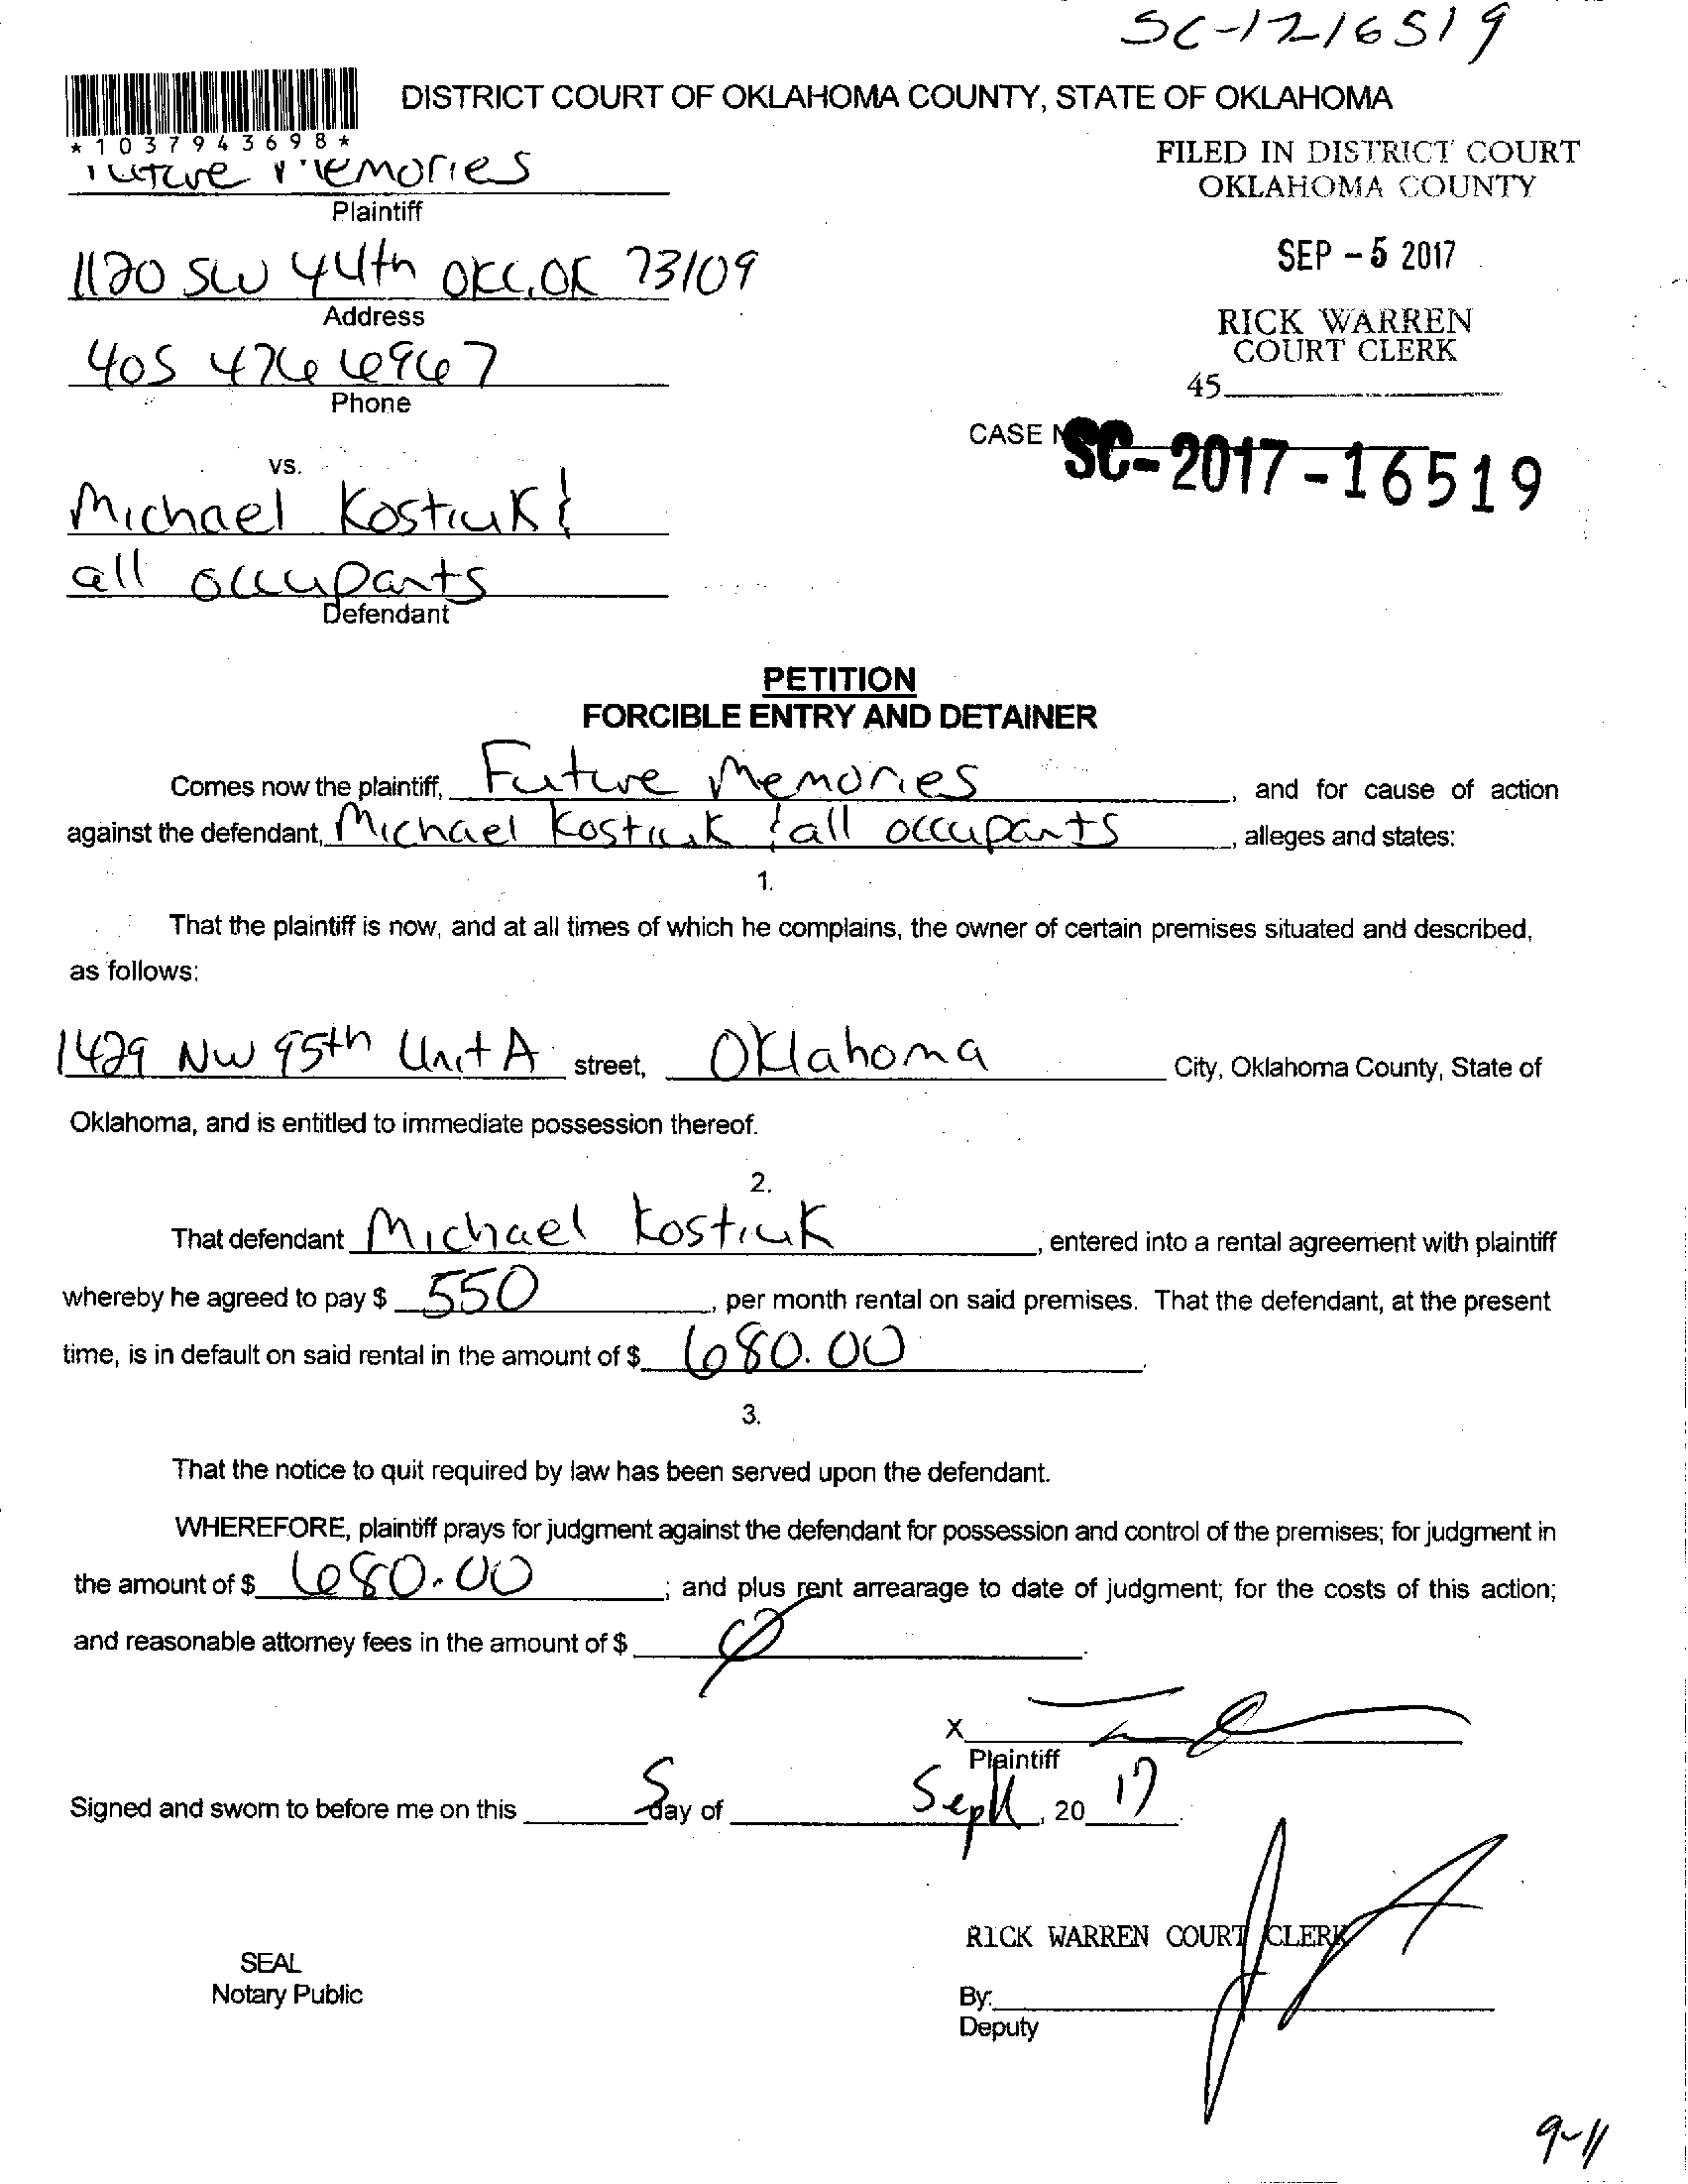 SC-1716519
DISTRICT COURT OF OKLAHOMA COUNTY, STATE OF OKLAHOMA
*1037943698*
Future Memories
Plaintiff
FILED IN DISTRICT COURT
OKLAHOMA COUNTY
SEP - 5 2017
RICK WARREN
COURT CLERK
45
1120 SW 44th OKC, OK 73109
Address
405 476 6967
Phone
CASE
SC-2017-16519
vs.
Michael Kostiuk &
all occupants
Defendant
PETITION
FORCIBLE ENTRY AND DETAINER
Comes now the plaintiff, Future Memories, and for cause of action
against the defendant, Michael Kostiuk & all occupants, alleges and states:
1.
That the plaintiff is now, and at all times of which he complains, the owner of certain premises situated and described,
as follows:
1429 NW 95th Unit A street, Oklahoma City, Oklahoma County, State of
Oklahoma, and is entitled to immediate possession thereof.
2.
That defendant Michael Kostiuk, entered into a rental agreement with plaintiff
whereby he agreed to pay $ 550, per month rental on said premises. That the defendant, at the present
time, is in default on said rental in the amount of $ 680.00.
3.
That the notice to quit required by law has been served upon the defendant.
WHEREFORE, plaintiff prays for judgment against the defendant for possession and control of the premises; for judgment in
the amount of $ 680.00; and plus rent arrearage to date of judgment; for the costs of this action;
and reasonable attorney fees in the amount of $ Ø.
X
Plaintiff
Signed and sworn to before me on this 5 day of Sept, 20 17.
RICK WARREN COURT CLERK
SEAL
Notary Public
By:
Deputy
9-11